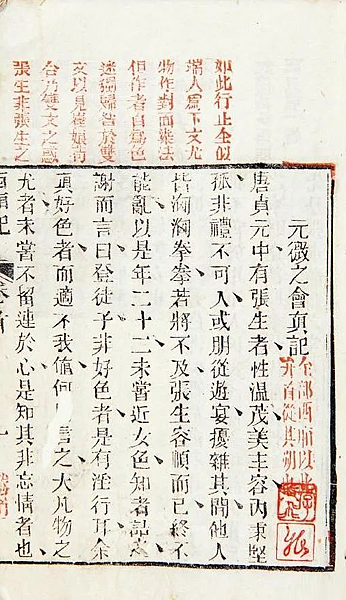 如此行止全似
端人爲下文尤
物作對而乘法
但作者自爲色
迷獨歸咎於雙
文以見崔娘青
合乃雙文之惑
張生非張生之
元微之會真記
全部西廂以此
唐貞元中有張生者性温茂美丰容内秉堅
孤非禮不可入或朋從遊宴擾雜其間他人
皆洶洶拳拳若將不及張生容順而已終不
能亂以是年二十二未嘗近女色知者詰之
謝而言曰登徒子非好色者是有淫行耳余
真好色者而適不我值何言之大凡物之
尤者未嘗不留連於心是知其非忘情者也
西廂記